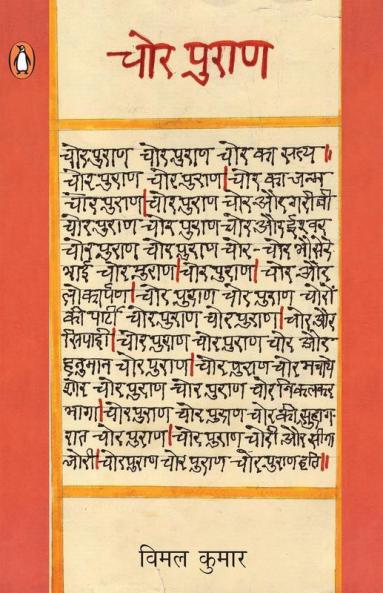 चोर पुराण
चोर पुराण चोर पुराण चोर का सत्य॥
चोर पुराण चोर पुराण।चोर का जन्म
चोर पुराण।चोर पुराण चोर और गरीबी
चोर पुराण चोर पुराण चोर और ईश्वर
चोर पुराण चोर पुराण चोर-चोर मौसेरे
भाई चोर पुराण।चोर पुराण।चोर और
लोकार्पण।चोर पुराण चोर पुराण चोरों
की पार्टी चोर पुराण चोर पुराण।चोर और
सिपाही।चोर पुराण चोर पुराण चोर और
हनुमान चोर पुराण।चोर पुराण चोर मचाये
शोर चोर पुराण चोर पुराण चोर निकलकर
भागा।चोर पुराण चोर पुराण चोर की सुहाग-
रात चोर पुराण।चोर पुराण चोरी और सीना
जोरी।चोर पुराण चोर पुराण चोर पुराण इति॥
विमल कुमार